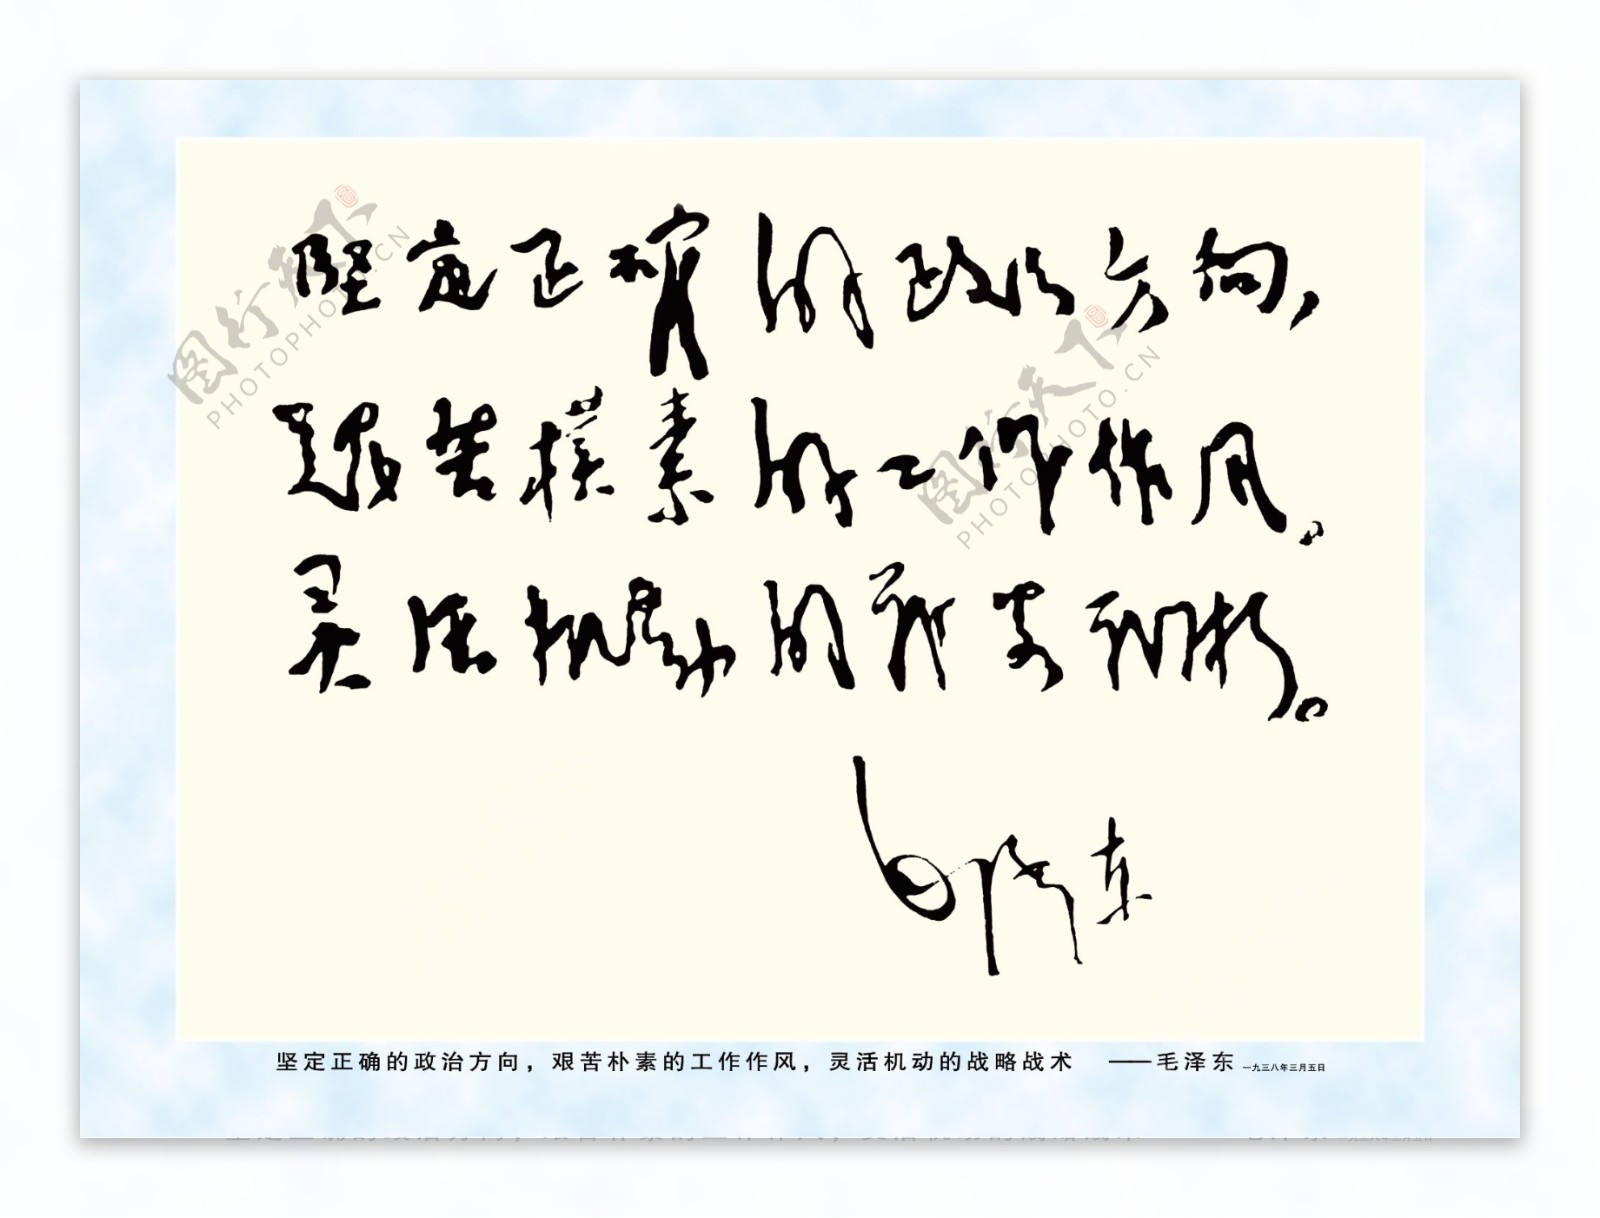 坚定正确的政治方向，
艰苦朴素的工作作风。
灵活机动的战略战术。
毛泽东
坚定正确的政治方向，艰苦朴素的工作作风，灵活机动的战略战术 ——毛泽东 一九三八年三月五日
图行天下
PHOTOPHOTO.CN
图行天下
PHOTOPHOTO.CN